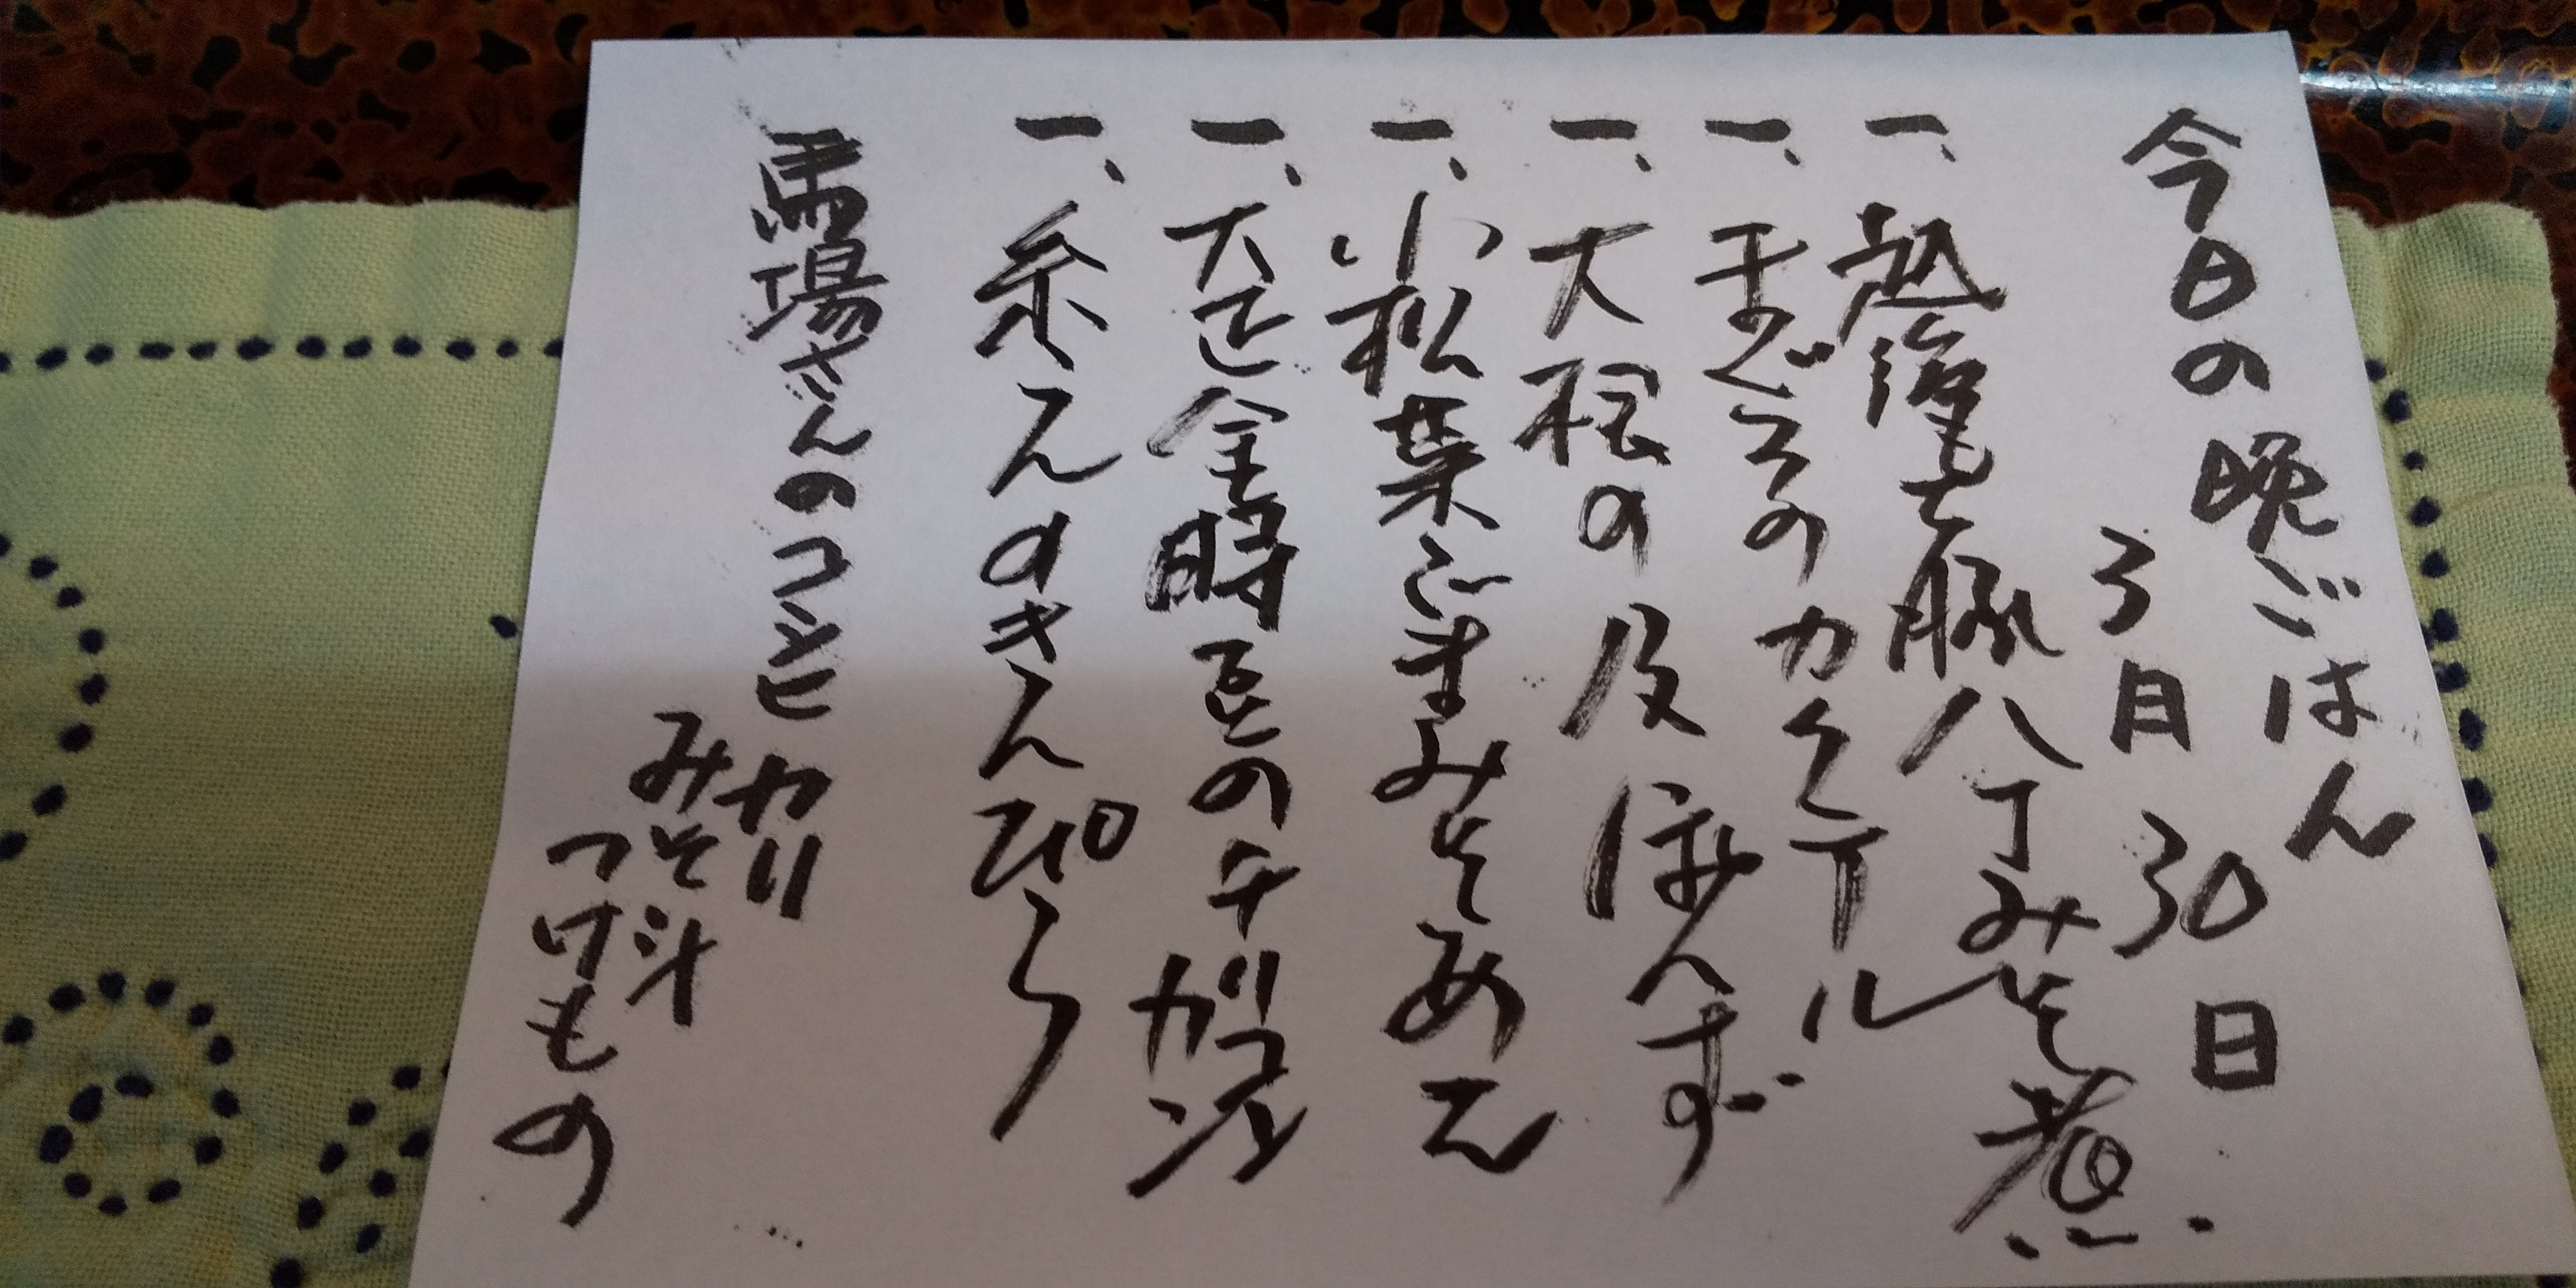 今日の晩ごはん
3月30日
一、越後もち豚八丁みそ煮
一、まぐろのカクテル
一、大根の皮ぽんず
一、小松菜ごまみそあえ
一、大正金時豆の
一、糸えのきんぴら
馬場さんのコシヒカリ
みそ汁
つけもの